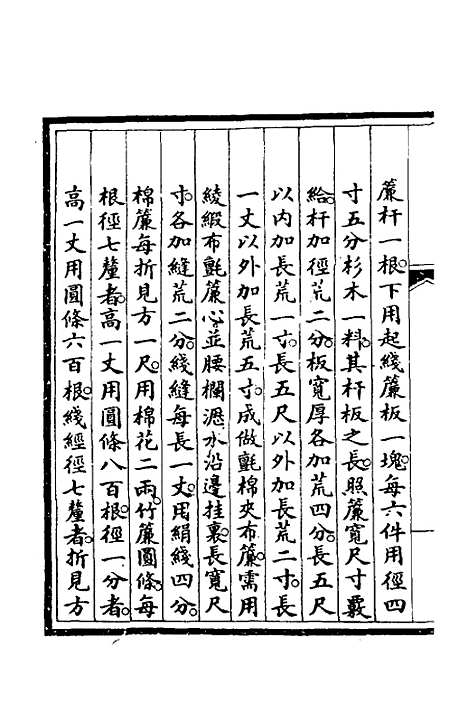 簾杆一根。下用起綫簾板一塊。每六件用徑四
寸五分杉木一料。其杆板之長。照簾寬尺寸覈
給。杆加徑荒二分。板寬厚各加荒四分。長五尺
以內加長荒一寸。長五尺以外加長荒二寸。長
一丈以外加長荒五寸。成做氊棉夾布簾。需用
綾緞布氊簾心並腰欄遮水沿邊挂裏。長寬尺
寸。各加縫荒二分。綫縫每長一丈。用絹綫四分。
棉簾每折見方一尺。用棉花二兩。竹簾圓條。每
根徑七釐者。高一丈用圓條八百根。徑一分者。
高一丈用圓條六百根。綫經徑七釐者。折見方